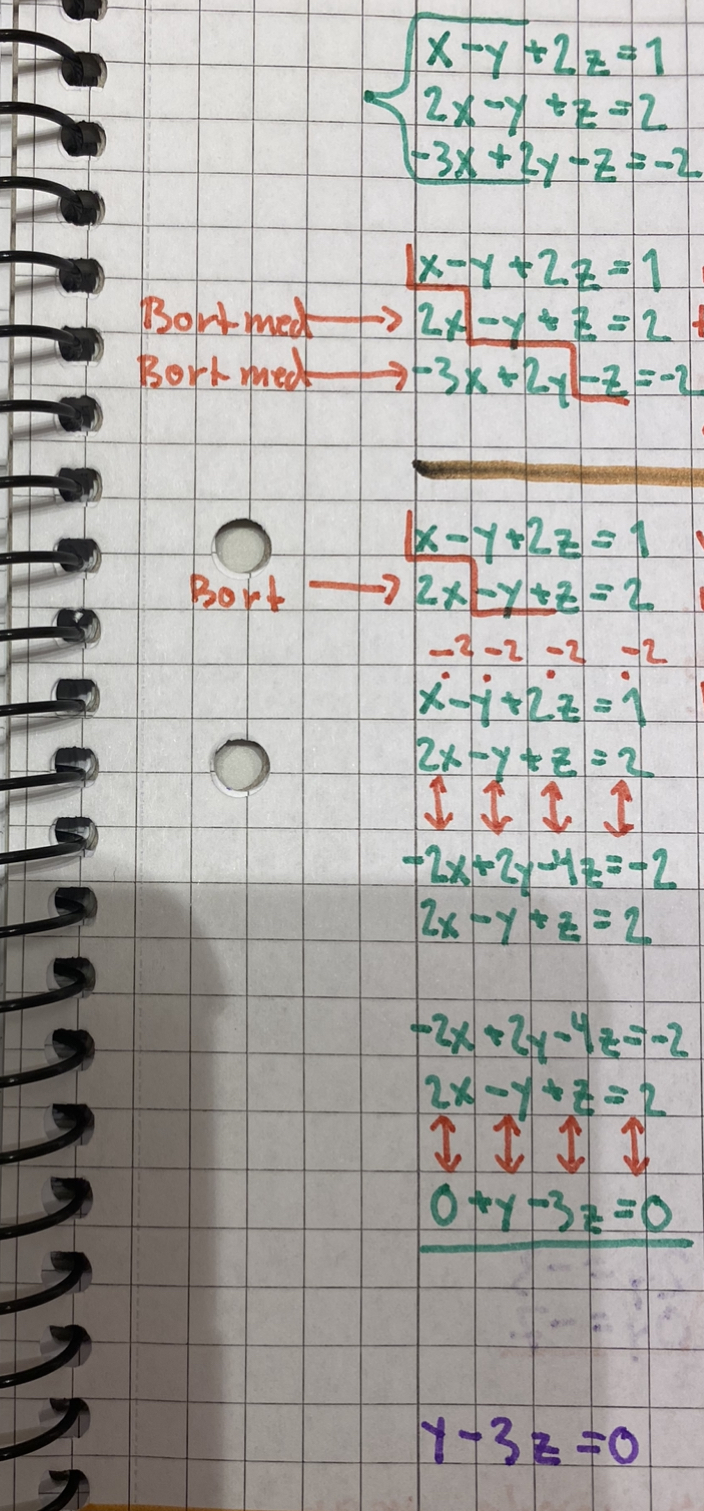 x-y+2z=1
2x-y+z=2
-3x+2y-z=-2
x-y+2z=1
Bort med → 2x-y+z=2
Bort med → -3x+2y-z=-2
x-y+2z=1
Bort → 2x-y+z=2
-2 -2 -2 -2
x-y+2z=1
2x-y+z=2
-2x+2y-4z=-2
2x-y+z=2
-2x+2y-4z=-2
2x-y+z=2
0+y-3z=0
y-3z=0